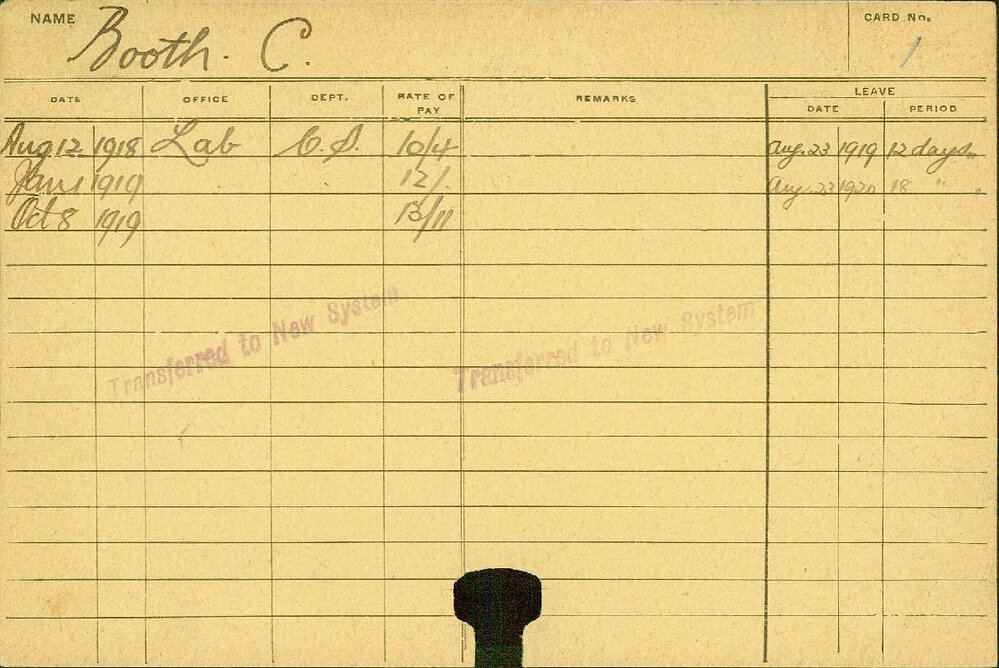 NAME Booth. C. CARD No. 1
DATE OFFICE DEPT. RATE OF PAY REMARKS LEAVE
DATE PERIOD
Aug 12 1918 Lab C.S. 10/4 Aug. 23 1919 12 days
Jan 1 1919 12/. Aug. 23 1920 18 "
Oct 8 1919 13/11
Transferred to New System Transferred to New System